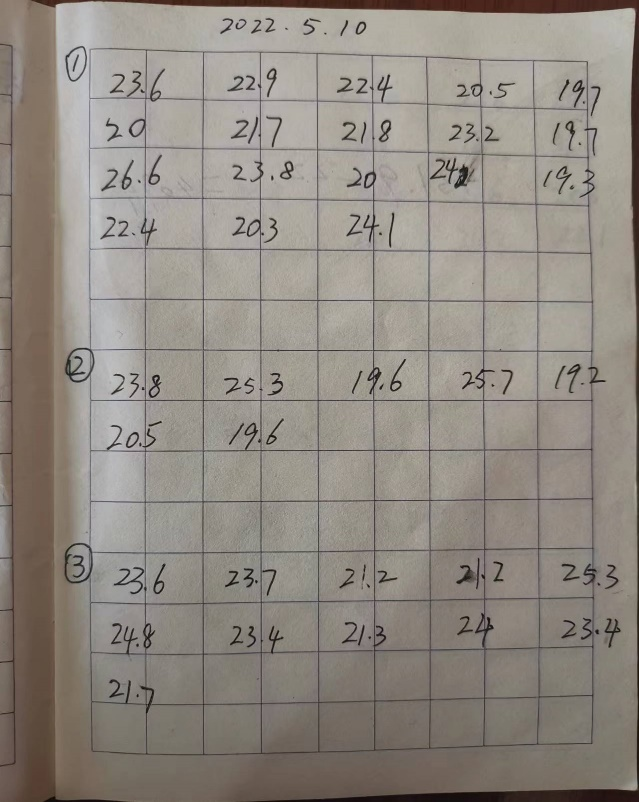 2022.5.10
① 23.6 22.9 22.4 20.5 19.7
20 21.7 21.8 23.2 19.7
26.6 23.8 20 24 19.3
22.4 20.3 24.1
② 23.8 25.3 19.6 25.7 19.2
20.5 19.6
③ 23.6 23.7 21.2 21.2 25.3
24.8 23.4 21.3 24 23.4
21.7